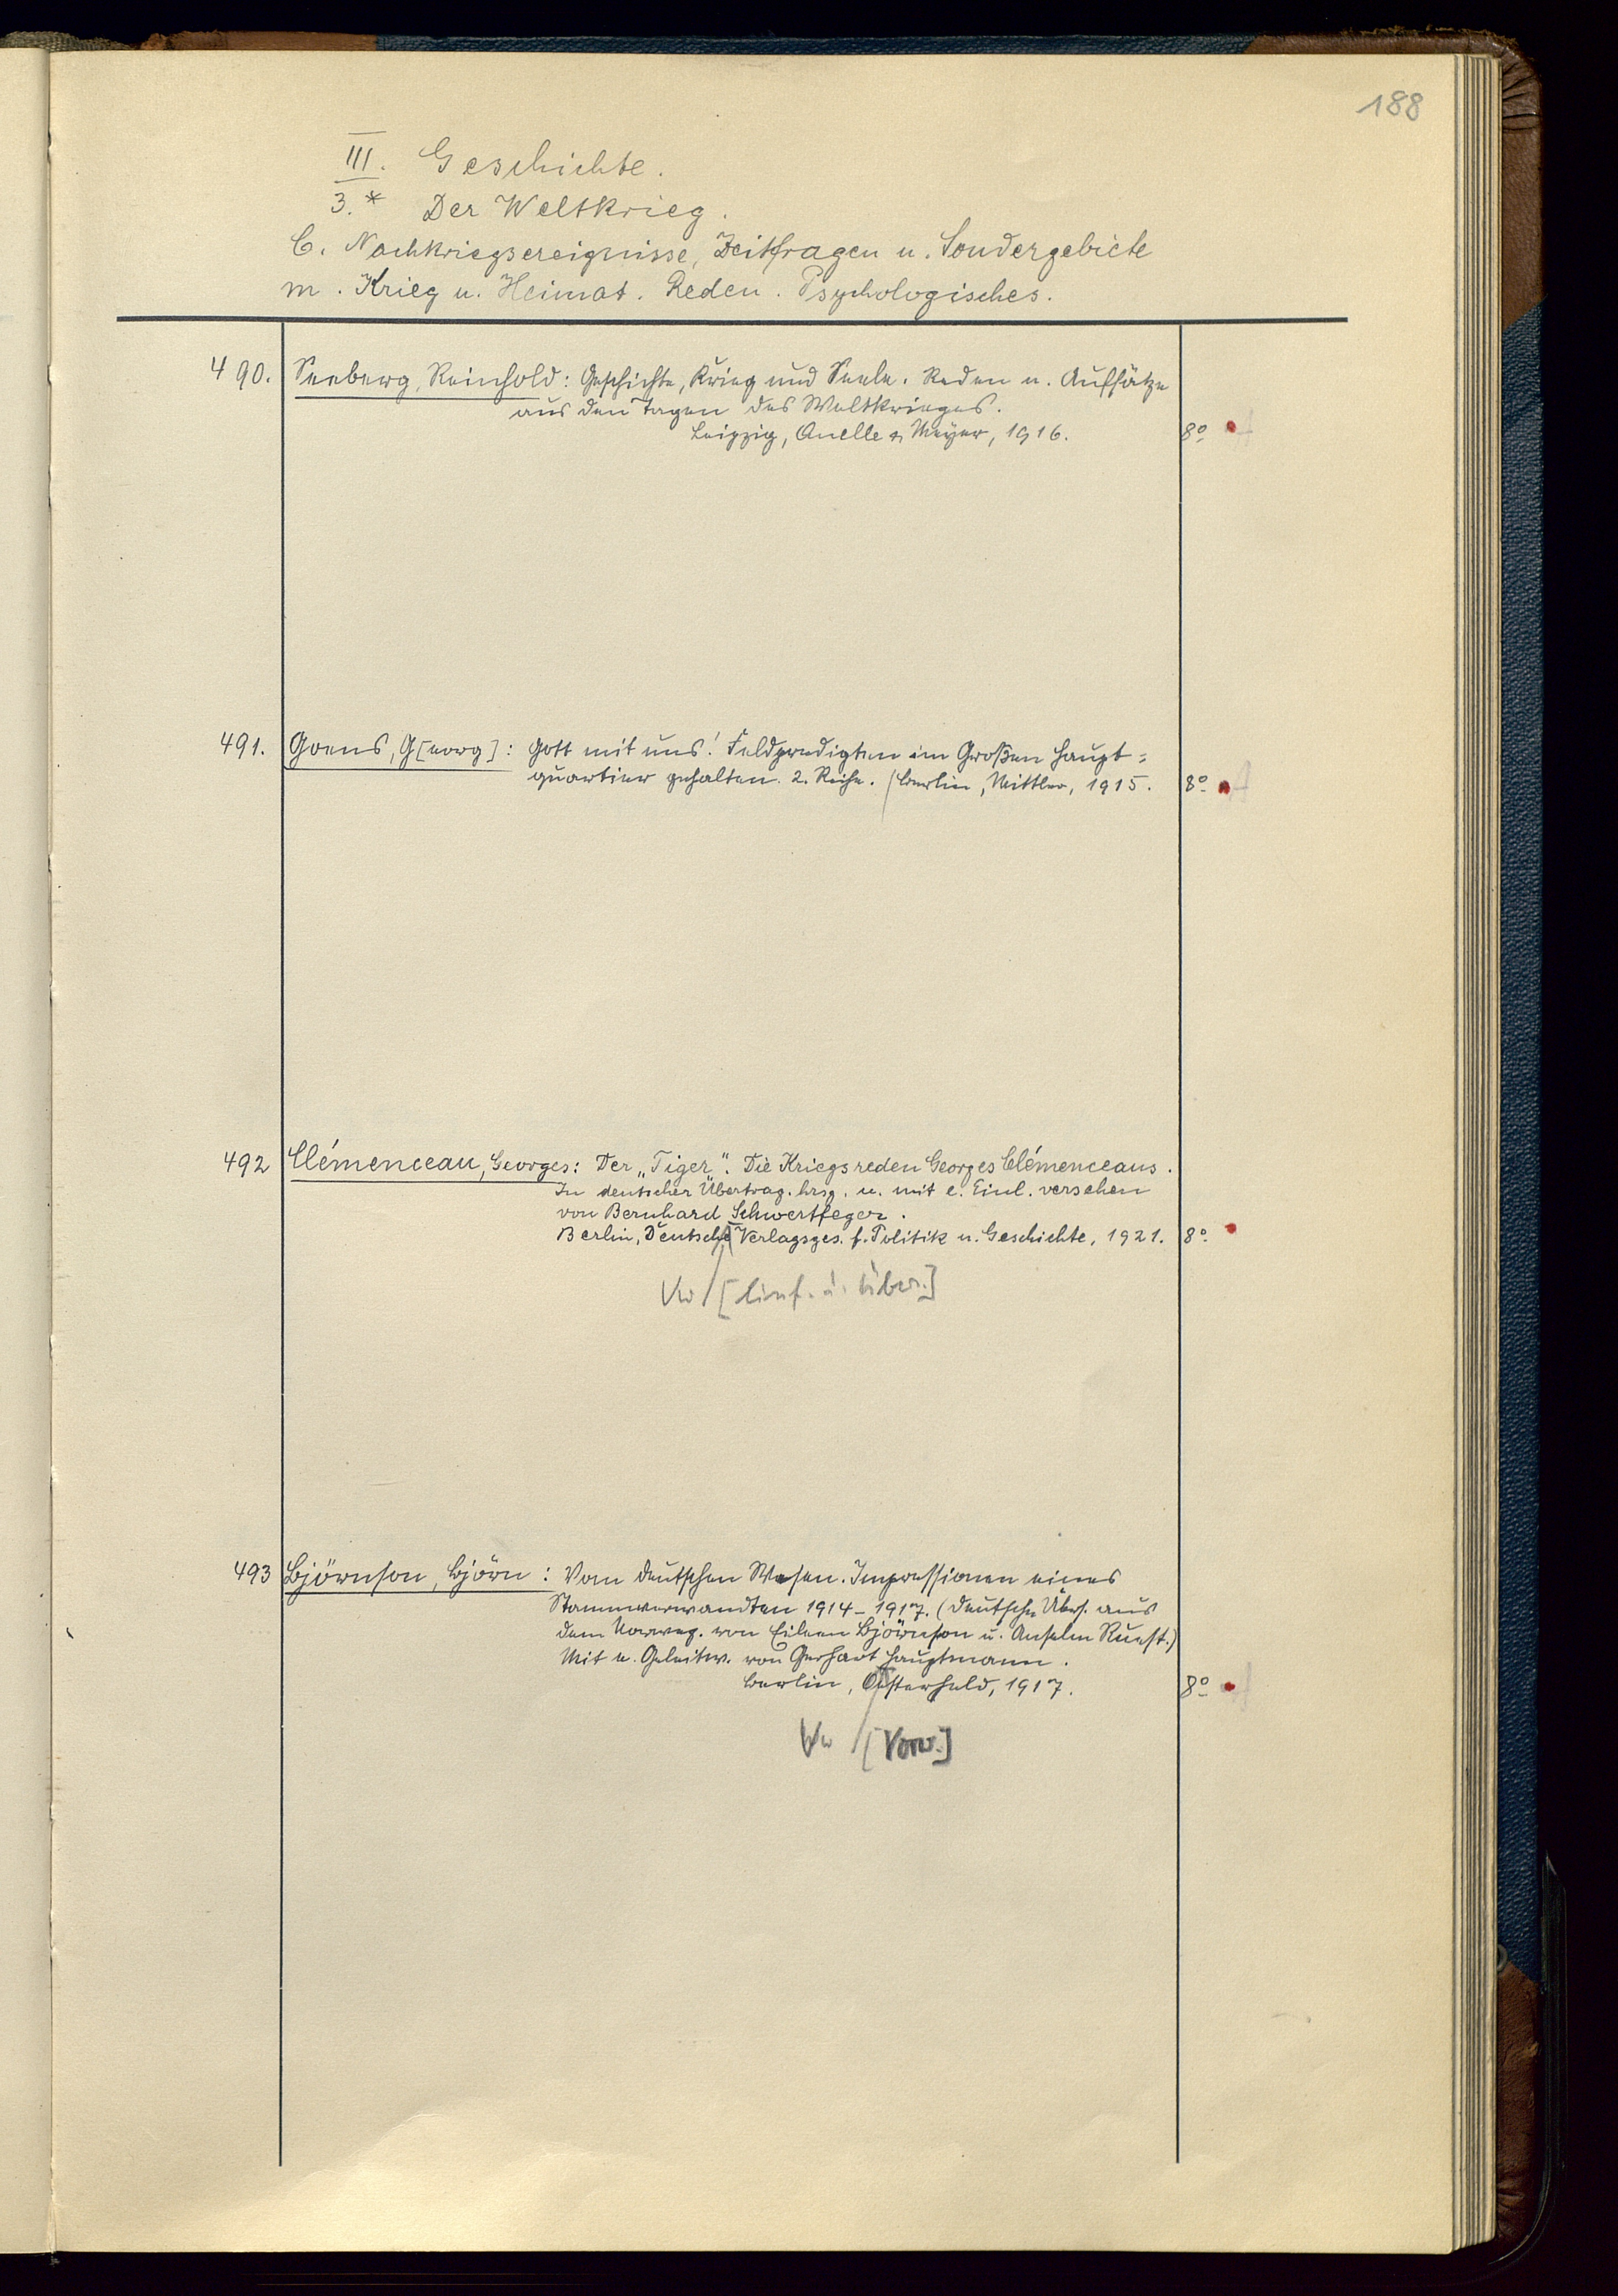 188
III. Geschichte.
3.* Der Weltkrieg.
C. Nachkriegsereignisse, Zeitfragen u. Sondergebiete
m. Krieg u. Heimat. Reden. Psychologisches.
490. Seeberg, Reinhold: Geschichte, Krieg und Seele. Reden u. Aufsätze
aus den Tagen des Weltkrieges.
Leipzig, Quelle & Meyer, 1916. 8°
491. Goens, G[eorg]: Gott mit uns! Feldpredigten im Großen Haupt=
quartier gehalten. 2. Reihe. / Berlin, Mittler, 1915. 8°
492 Clémenceau, Georges: Der „Tiger“. Die Kriegsreden Georges Clémenceaus.
In deutscher Übertrag. hrsg. u. mit e. Einl. versehen
von Bernhard Schwertfeger.
Berlin, Deutsche Verlagsges. f. Politik u. Geschichte, 1921. 8°
Vw / [Einf. u. Über.]
493 Björnson, Björn: Vom deutschen Wesen. Impressionen eines
Stammverwandten 1914-1917. (Deutsche Übers. aus
dem Norweg. von Eileen Björnson u. Anselm Ruest.)
Mit e. Geleitw. von Gerhart Hauptmann.
Berlin, Oesterheld, 1917. 8°
Vw / [Vorw.]